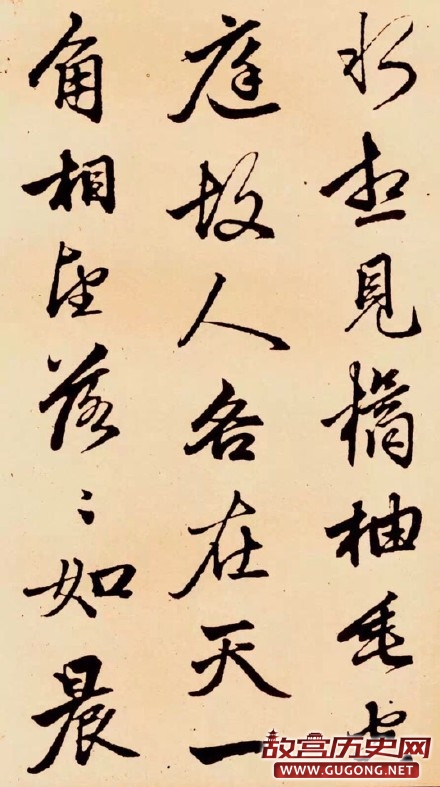 水想見橘柚垂空
庭故人各在天一
角相望落〻如晨
故宫历史网
WWW.GUGONG.NET